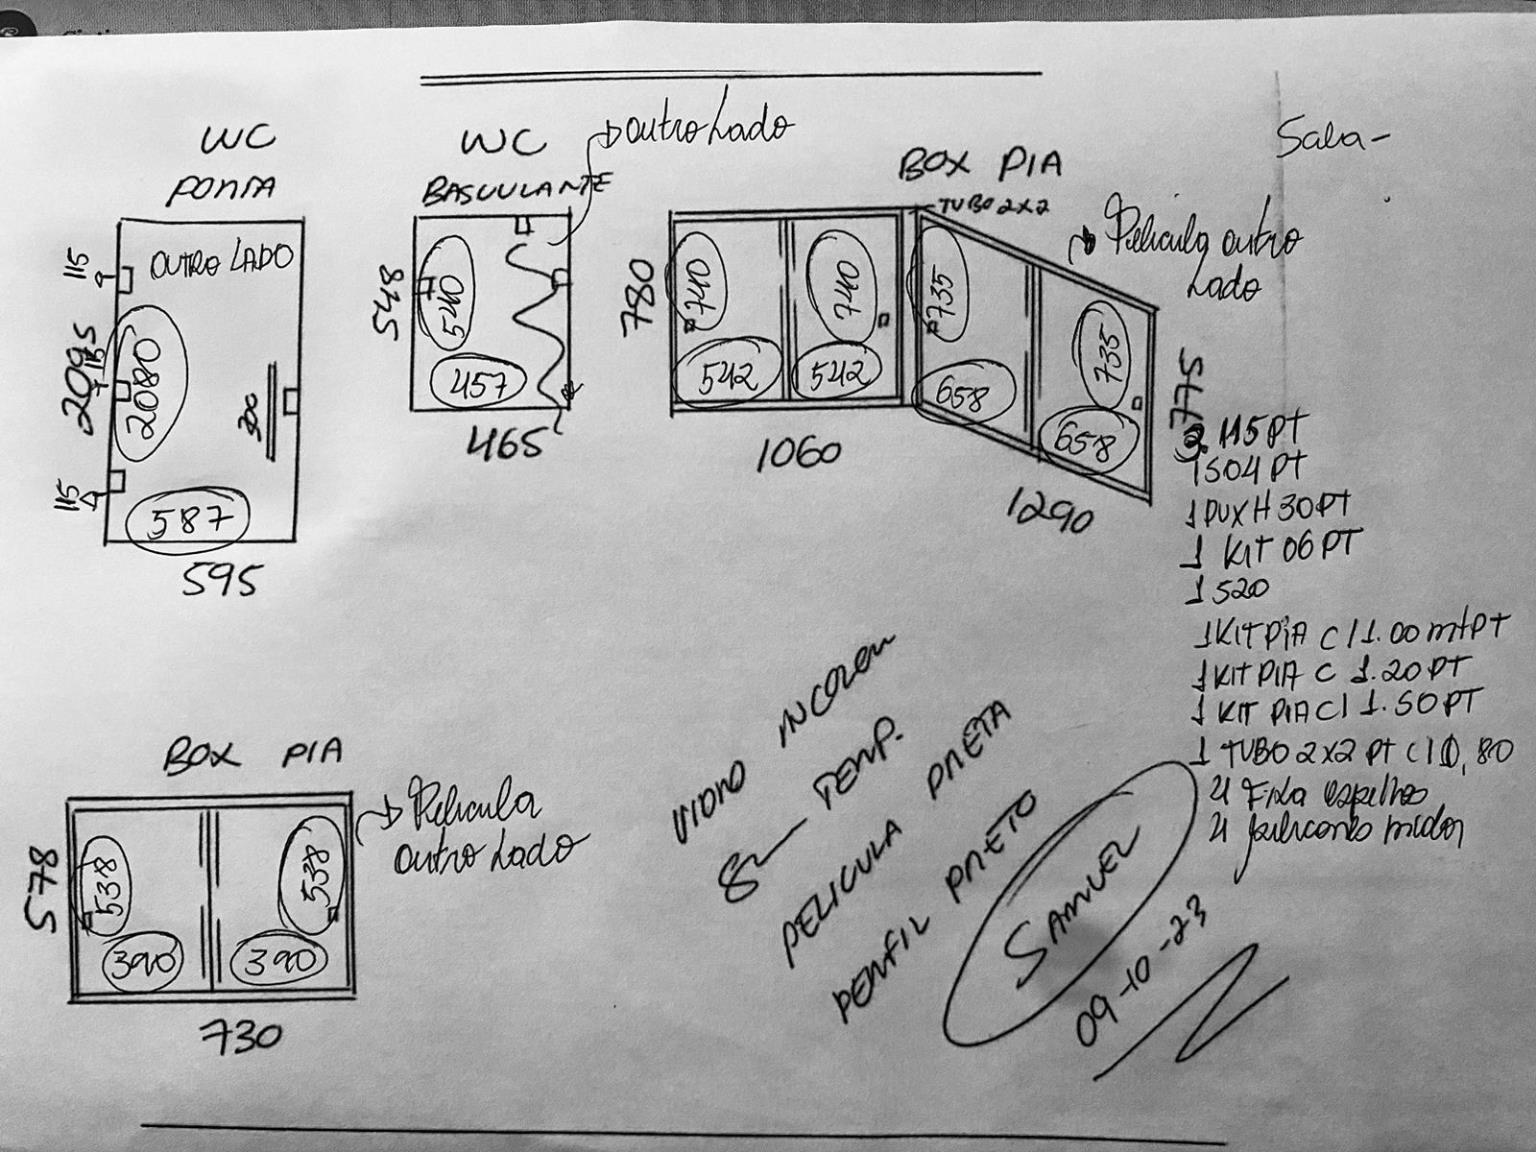 WC
PORTA
OUTRO LADO
115
2095
115
2080
300
115
587
595
WC
BASCULANTE
outro Lado
548
540
457
465
BOX PIA
TUBO 2x2
Pelicula outro
Lado
780
740
740
542
542
1060
735
735
658
658
775
1290
Sala-
2 115 PT
1 504 PT
1 PUX H 30 PT
1 KIT 06 PT
1 520
1 KIT PIA C/ 1.00 mt PT
1 KIT PIA C 1.20 PT
1 KIT PIA C/ 1.50 PT
1 TUBO 2x2 PT C/ 0,80
BOX PIA
Pelicula
outro Lado
578
538
538
390
390
730
VIDRO INCOLOR
8 TEMP.
PELICULA PRETA
PERFIL PRETO
SAMUEL
09-10-23